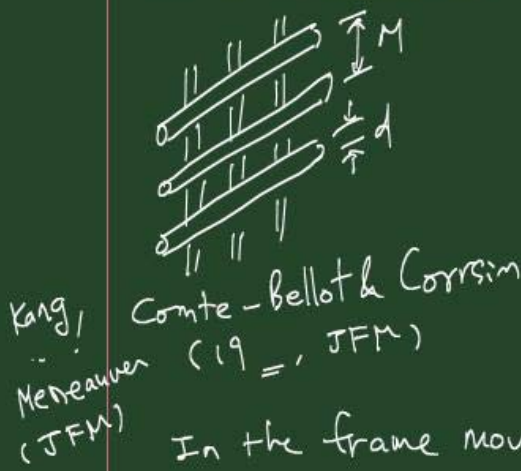 M
d
Kang, Comte-Bellot & Corrsin
.. Meneauver (19 =, JFM)
(JFM)
In the frame mov